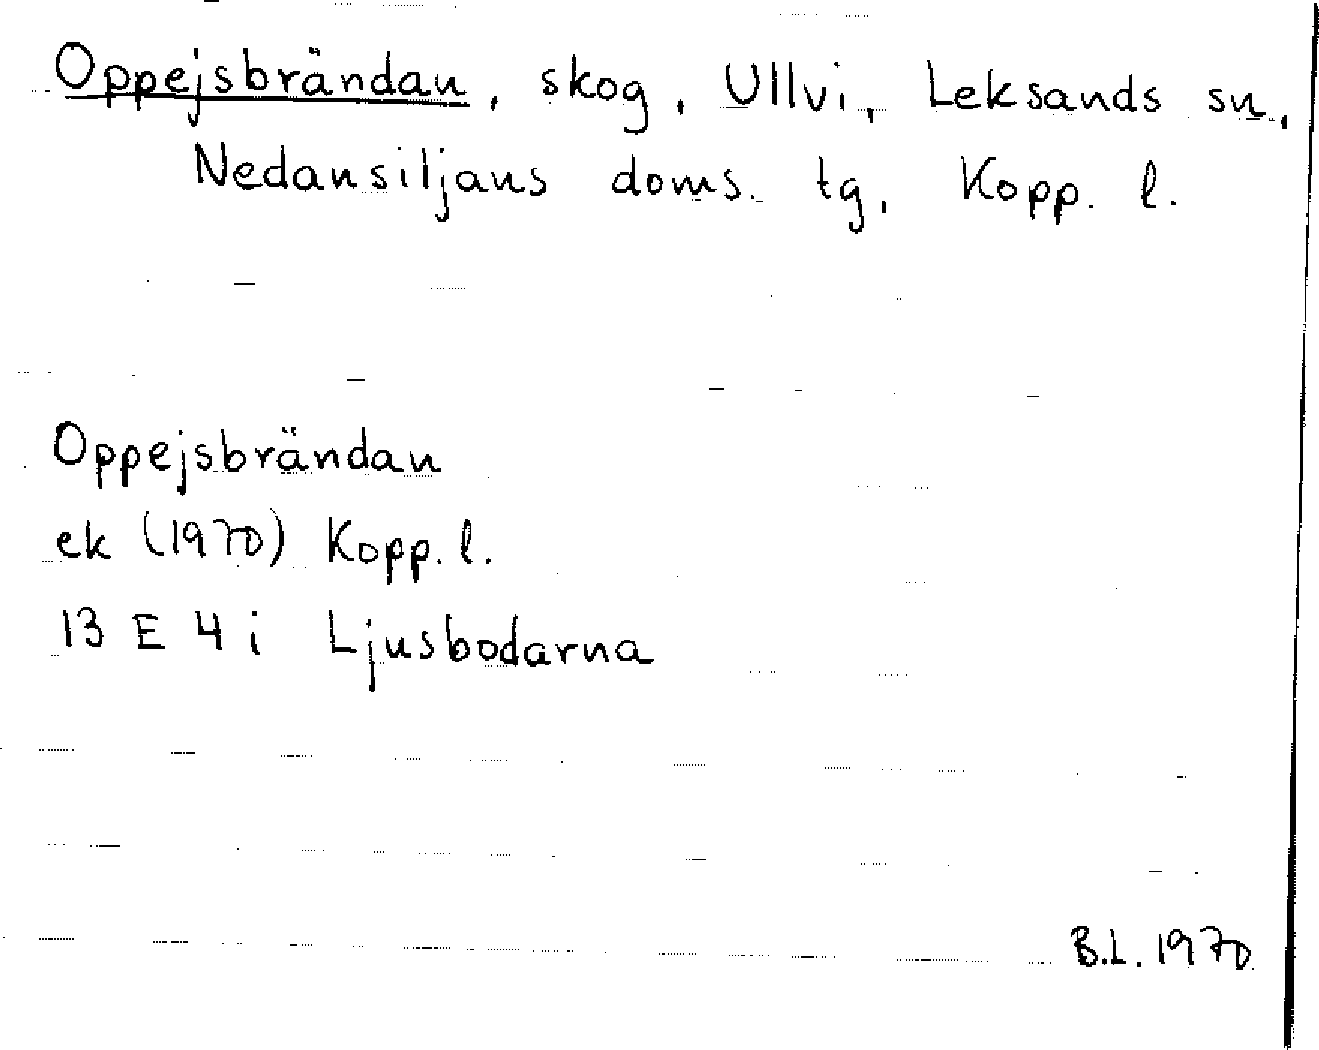 Oppejsbrändan, skog, Ullvi, Leksands sn,
Nedansiljans doms. tg, Kopp. l.
Oppejsbrändan
ek (1970) Kopp. l.
13 E 4 i Ljusbodarna
B.L. 1970